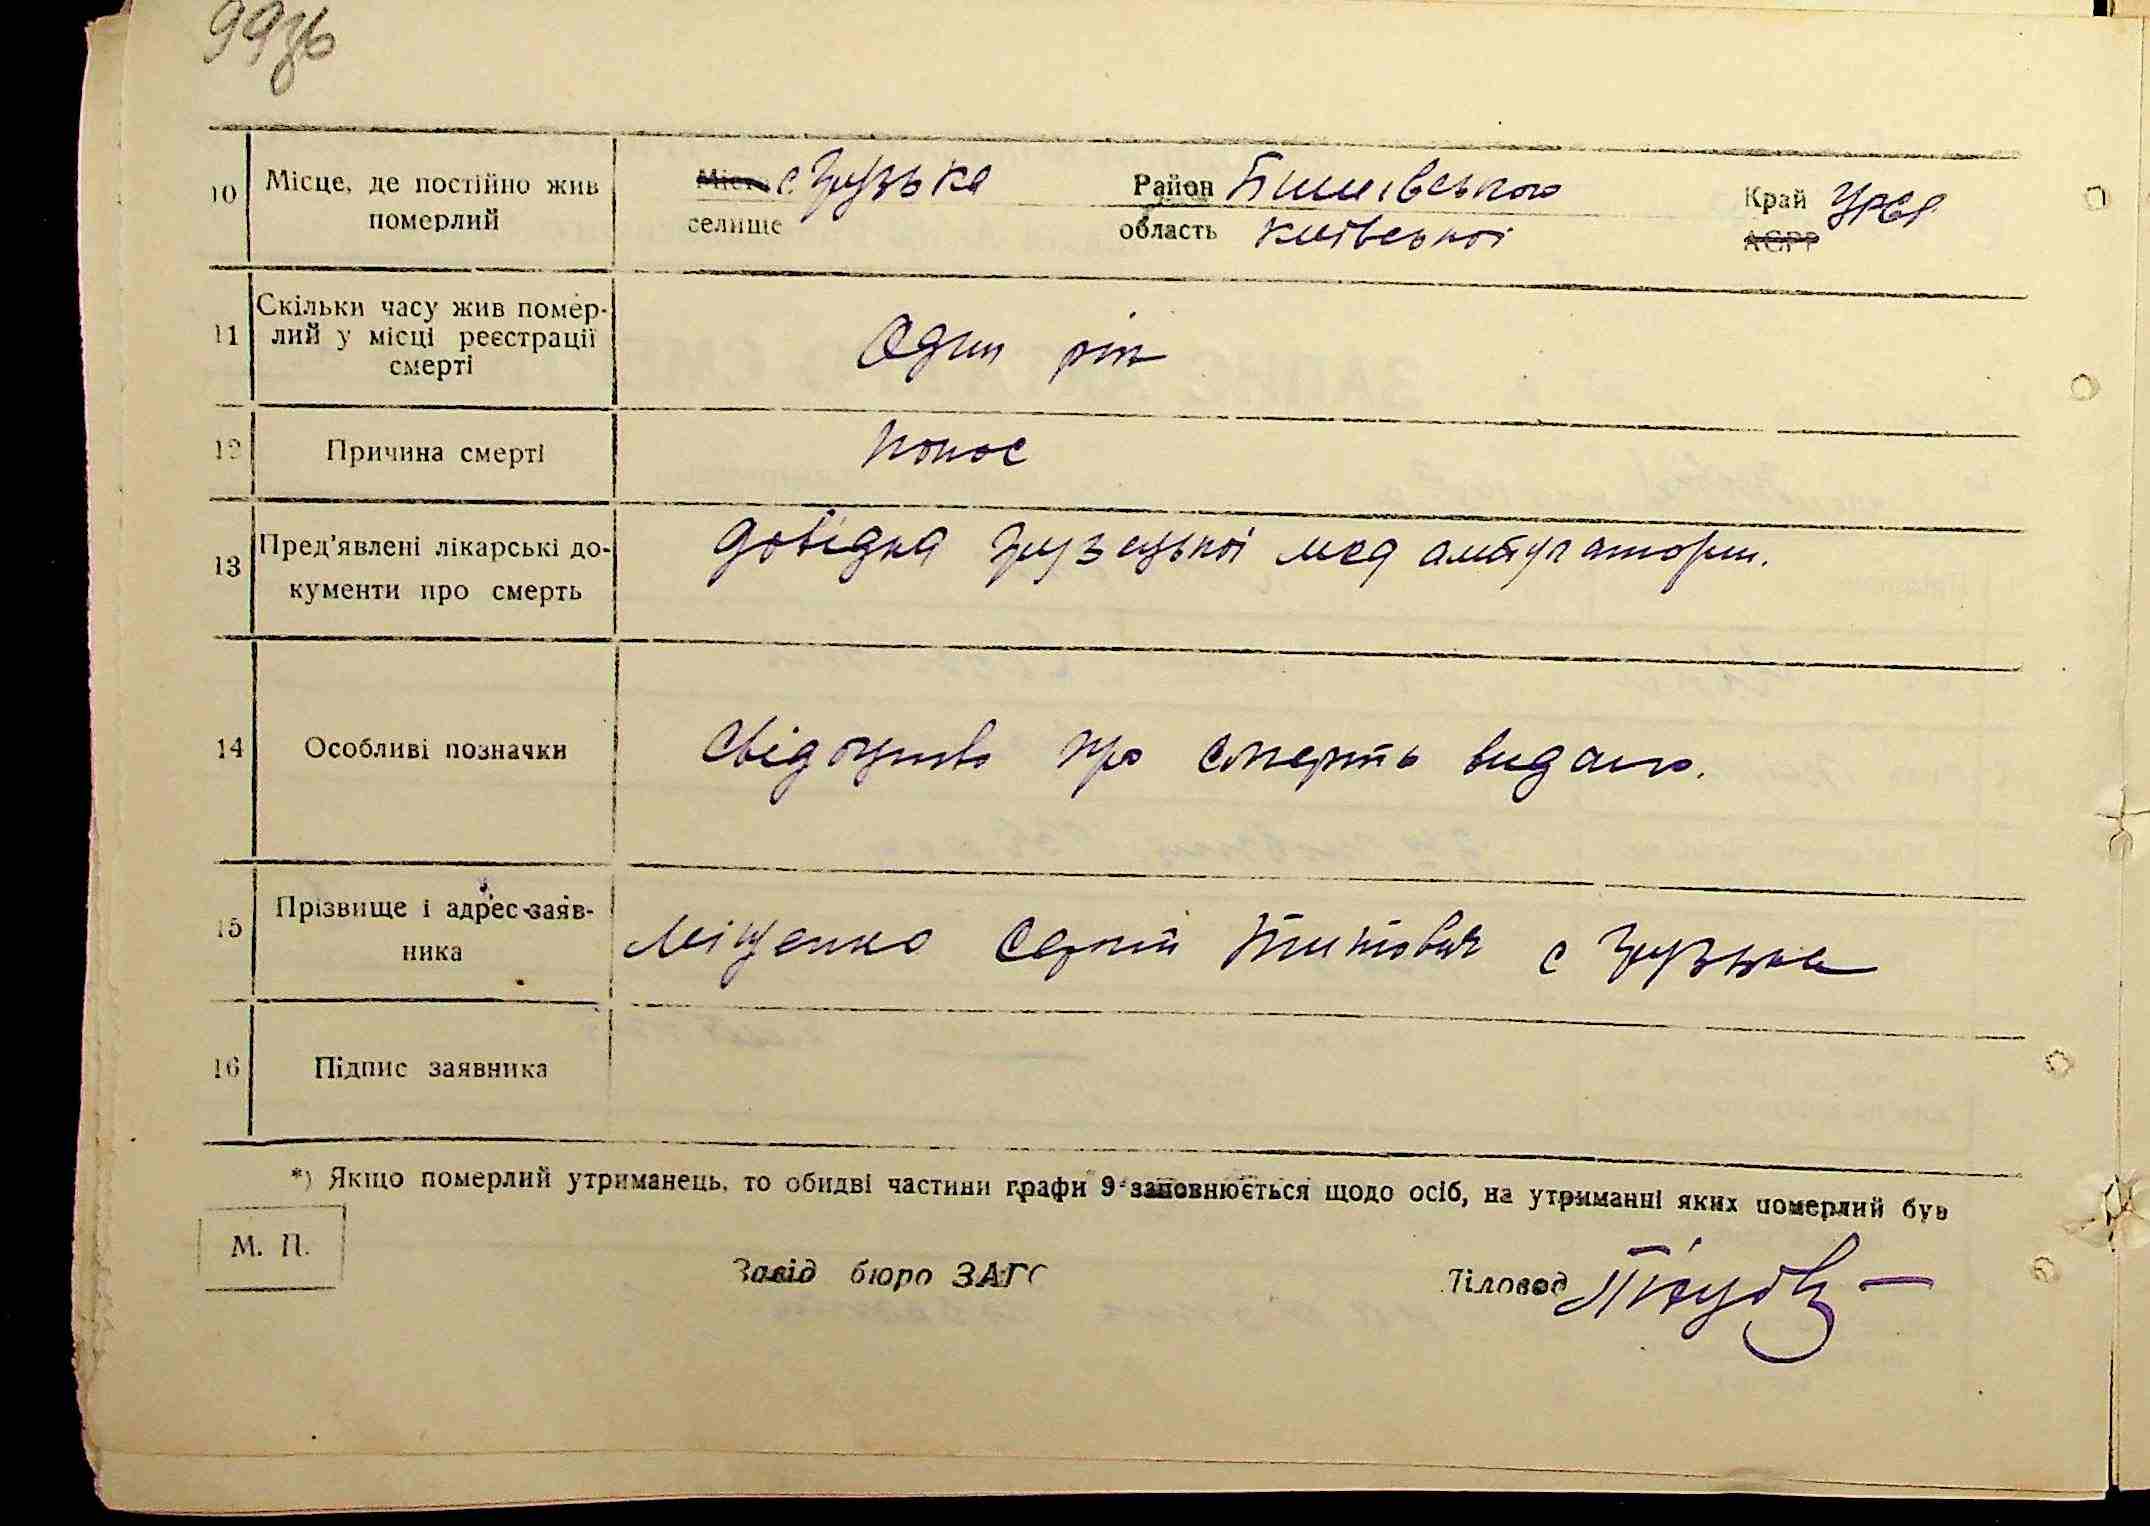 99зв
10 Місце, де постійно жив Місто с. Грузька Район Бишівського Край УРСР
померлий селище область Київської АСРР
11 Скільки часу жив помер-
лий у місці реєстрації Один рік
смерті
12 Причина смерті Понос
13 Пред'явлені лікарські до- довідка Грузецької мед амбулатории.
кументи про смерть
14 Особливі позначки Свідоцтво про смерть видано.
15 Прізвище і адрес заяв- Міщенко Сергій Титович с Грузька
ника
16 Підпис заявника
*) Якщо померлий утриманець, то обидві частини графи 9 заповнюється щодо осіб, на утриманні яких померлий був
М. П.
Завід бюро ЗАГС Діловод